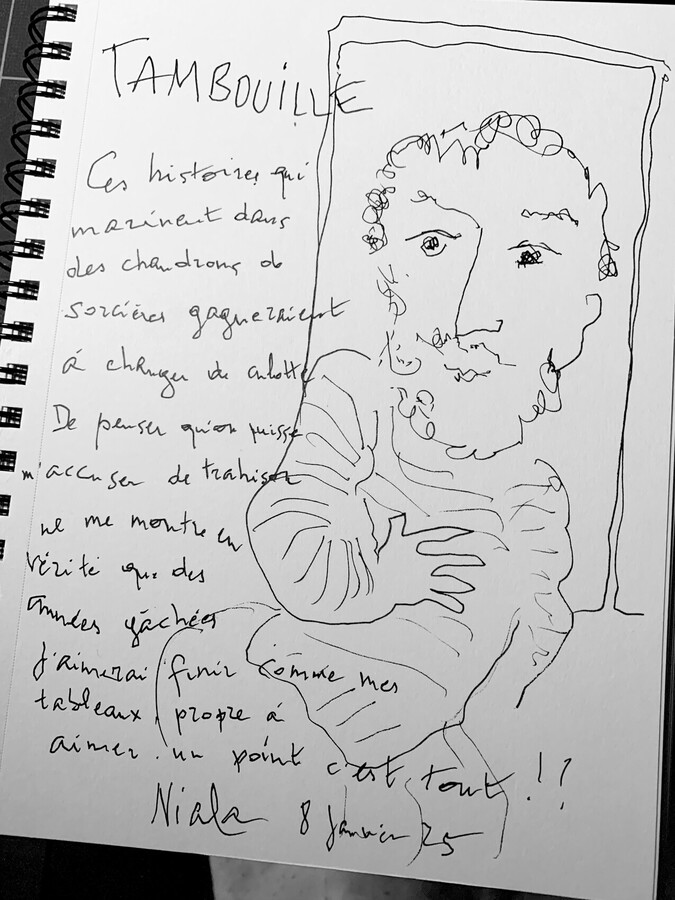 TAMBOUILLE
Ces histoires qui
marinent dans
des chaudrons de
sorcières gagneraient
à changer de culotte
De penser qu'on puisse
m'accuser de trahison
ne me montre en
vérité que des
années gâchées
J'aimerai finir comme mes
tableaux, propre à
aimer un point c'est tout !!
Niala 8 Janvier 25